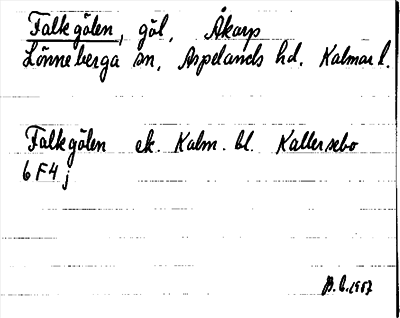 Falkgölen, göl, Åkarp
Lönneberga sn, Aspelands hd. Kalmar l.
Falkgölen ek. Kalm. bl. Kallersebo
6F4j
1957